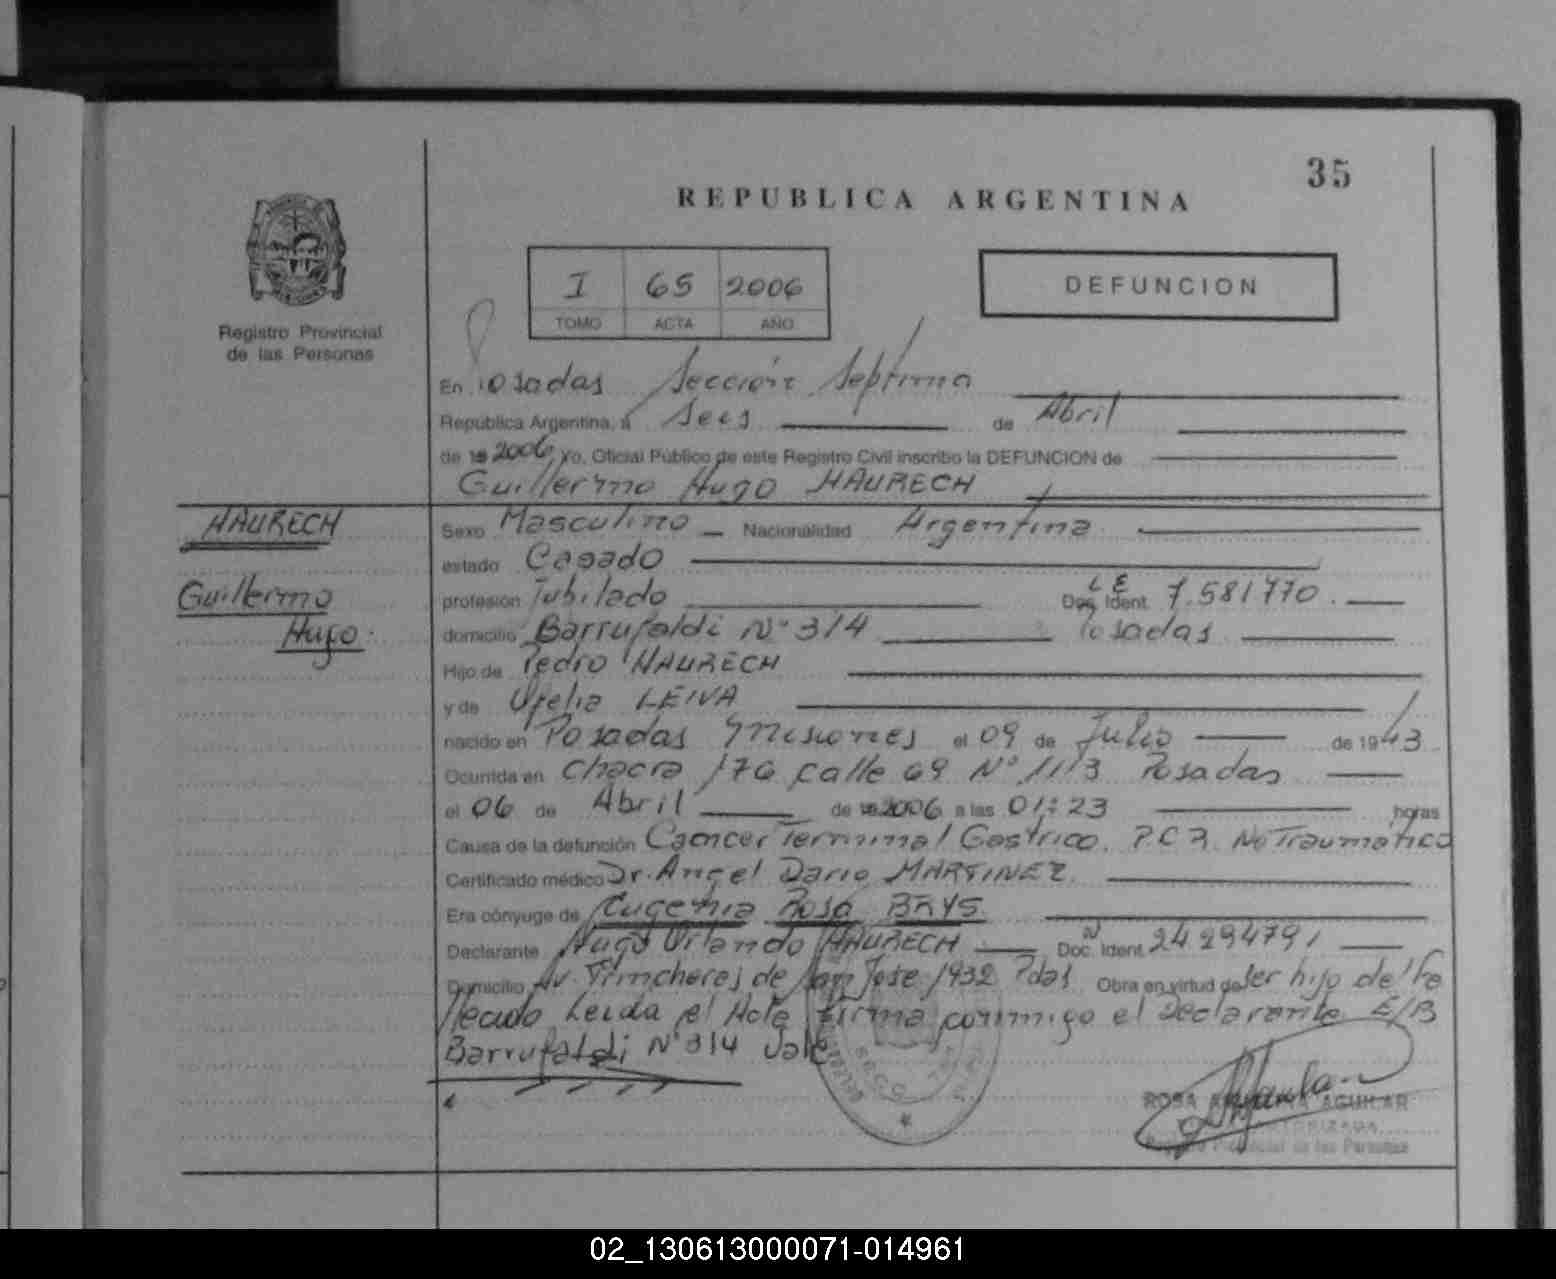 35
REPUBLICA ARGENTINA
I 65 2006
TOMO ACTA AÑO
DEFUNCION
Registro Provincial
de las Personas
En Posadas Sección Septima
República Argentina, a Seis de Abril
de 19 2006 Yo, Oficial Público de este Registro Civil inscribo la DEFUNCION de
Guillermo Hugo HAURECH
HAURECH
Guillermo
Hugo.
Sexo Masculino Nacionalidad Argentina
estado Casado
profesión Jubilado Doc. Ident. L E 7.581770.
domicilio Barrufaldi N° 314 Posadas
Hijo de Pedro HAURECH
y de Ofelia LEIVA
nacido en Posadas Misiones el 09 de Julio de 1943
Ocurrida en Chacra 176 calle 69 N° 1113 Posadas
el 06 de Abril de 19 2006 a las 01:23 horas
Causa de la defunción Cancer Terminal Gastrico. P.C.R. No Traumatico
Certificado médico Dr. Angel Dario MARTINEZ.
Era cónyuge de Eugenia Rosa BRYS.
Declarante Hugo Orlando HAURECH Doc. Ident. 24.294791
Domicilio Av. Trincheras de San Jose 1932 Pdas Obra en virtud de Ser hijo del fa
llecido Leida el Acta firma conmigo el Declarante. E/B
Barrufaldi N° 314 Vale
ROSA AGUILAR
AUTORIZADA
Registro Provincial de las Personas
02_130613000071-014961